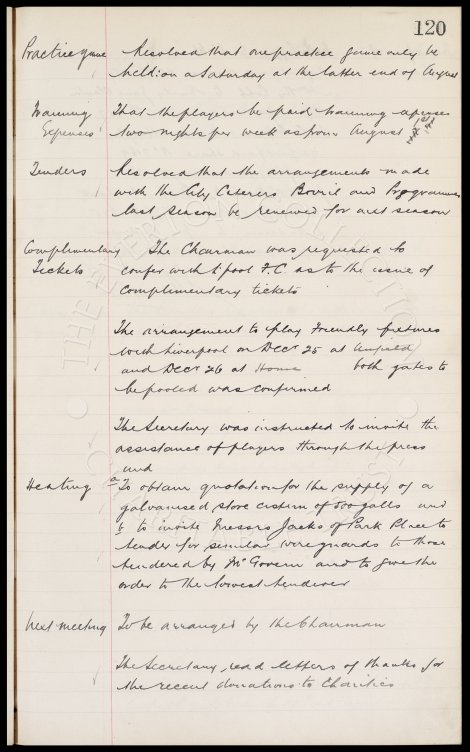 120
Practice game Resolved that one practice game only be
held on a Saturday at the latter end of August
Training Expenses That the players be paid training expenses
two nights per week as from August 1st
Tenders Resolved that the arrangements made
with the City Caterers Bovril and Programmes
last season be renewed for next season
Complimentary Tickets The Chairman was requested to
confer with L'pool F.C. as to the issue of
complimentary tickets
The arrangement to play Friendly fixtures
with Liverpool on Decr 25 at Anfield
and Decr 26 at Home both gates to
be pooled was confirmed
The Secretary was instructed to invite the
assistance of players through the press
and
Heating a To obtain quotation for the supply of a
galvanised store cistern of 500 galls and
b to invite Messrs Jacks of Park Place to
tender for similar wireguards to those
tendered by McGovern and to give the
order to the lowest tenderer
Next meeting To be arranged by the Chairman
The Secretary read letters of thanks for
the recent donations to Charities
THE EVERTON COLLECTION